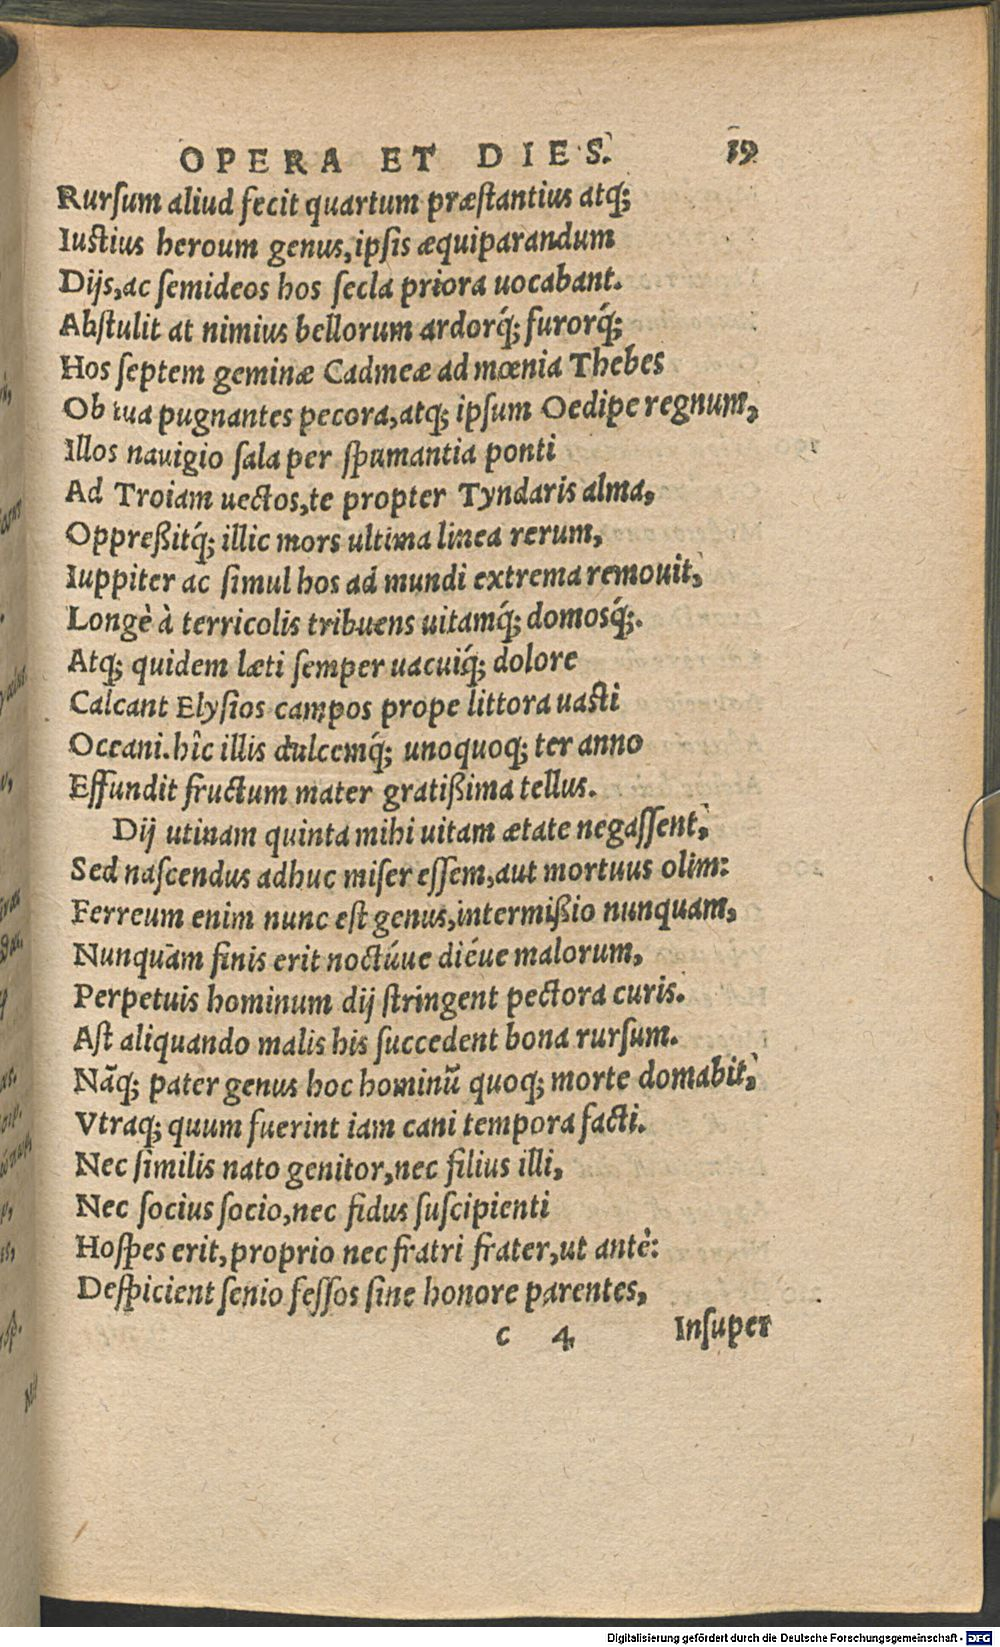 OPERA ET DIES. 19
Rurſum aliud fecit quartum præſtantius atq;
Iuſtius heroum genus, ipſis æquiparandum
Dijs, ac ſemideos hos ſecla priora uocabant.
Abſtulit at nimius bellorum ardorq́; furorq́;
Hos ſeptem geminæ Cadmeæ ad mœnia Thebes
Ob tua pugnantes pecora, atq; ipſum Oedipe regnum,
Illos nauigio ſala per ſpumantia ponti
Ad Troiam uectos, te propter Tyndaris alma,
Oppreßitq́; illic mors ultima linea rerum,
Iuppiter ac ſimul hos ad mundi extrema remouit,
Longè à terricolis tribuens uitamq́; domosq́;.
Atq; quidem læti ſemper uacuiq́; dolore
Calcant Elyſios campos prope littora uaſti
Oceani. hîc illis dulcemq́; unoquoq; ter anno
Effundit fructum mater gratißima tellus.
Dij utinam quinta mihi uitam ætate negaſſent,
Sed naſcendus adhuc miſer eſſem, aut mortuus olim:
Ferreum enim nunc eſt genus, intermißio nunquam,
Nunquam finis erit noctúue diéue malorum,
Perpetuis hominum dij ſtringent pectora curis.
Aſt aliquando malis his ſuccedent bona rurſum.
Nāq; pater genus hoc hominū quoq; morte domabit,
Vtraq; quum fuerint iam cani tempora facti.
Nec ſimilis nato genitor, nec filius illi,
Nec ſocius ſocio, nec fidus ſuſcipienti
Hoſpes erit, proprio nec fratri frater, ut antè:
Deſpicient ſenio feſſos ſine honore parentes,
c 4 Inſuper
Digitalisierung gefördert durch die Deutsche Forschungsgemeinschaft - DFG